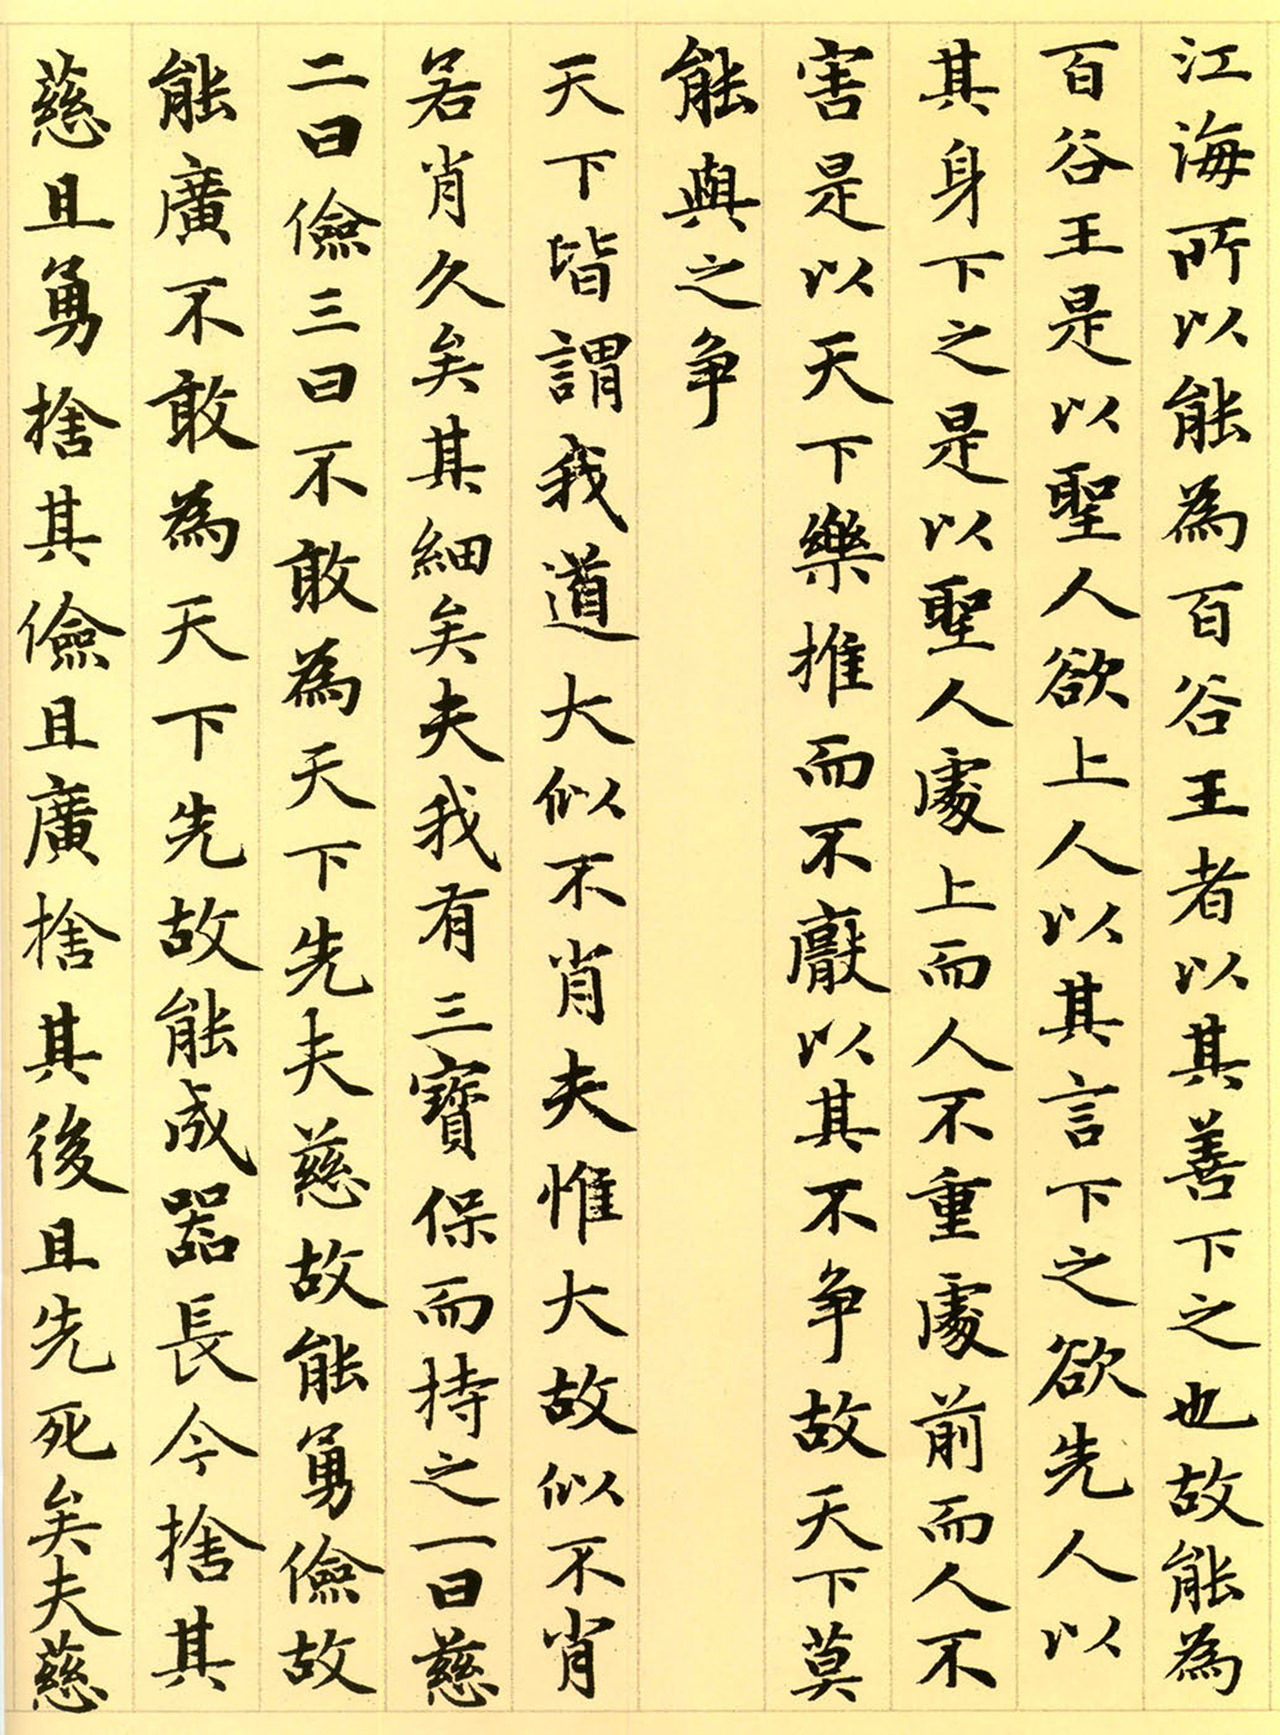 江海所以能為百谷王者以其善下之也故能為
百谷王是以聖人欲上人以其言下之欲先人以
其身下之是以聖人處上而人不重處前而人不
害是以天下樂推而不厭以其不争故天下莫
能與之争
天下皆謂我道大似不肖夫惟大故似不肖
若肖久矣其細矣夫我有三寶保而持之一曰慈
二曰儉三曰不敢為天下先夫慈故能勇儉故
能廣不敢為天下先故能成器長今捨其
慈且勇捨其儉且廣捨其後且先死矣夫慈